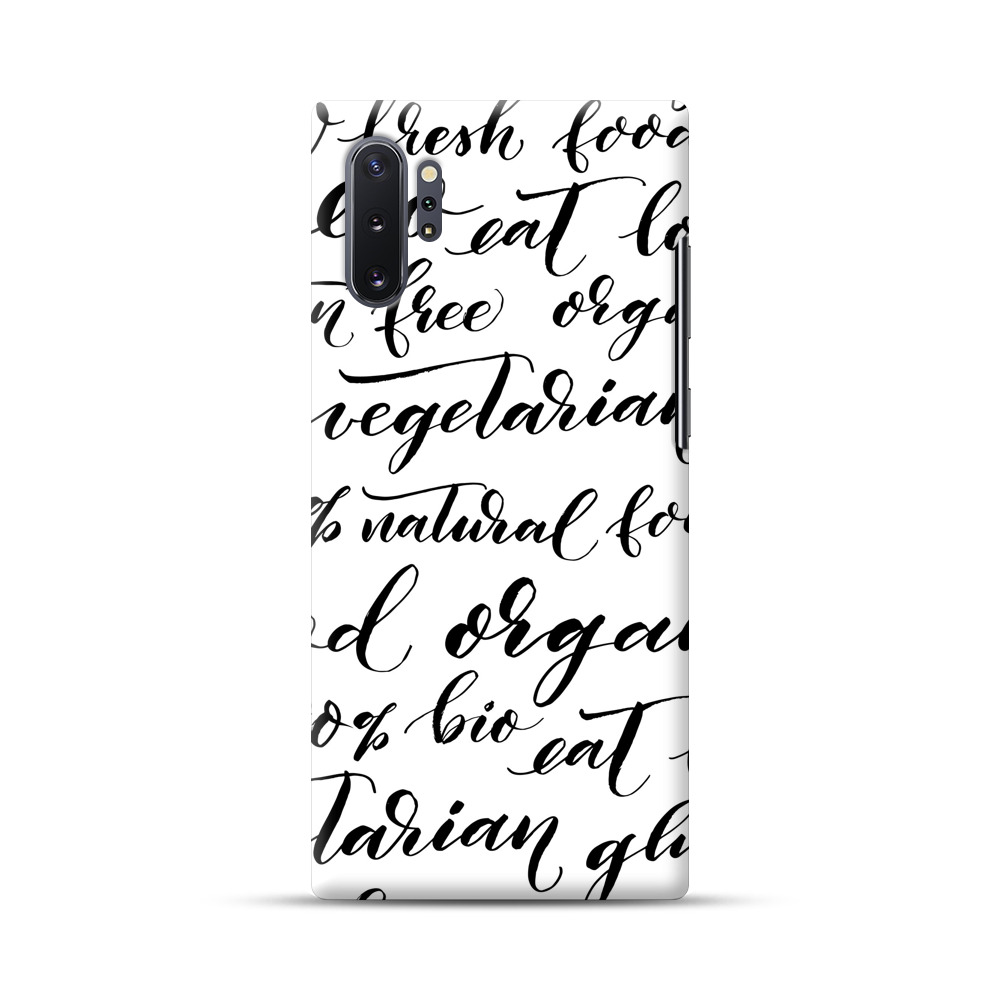 fresh food
eat lo
n free orga
vegetarian
% natural foo
d organ
0% bio eat
tarian glu